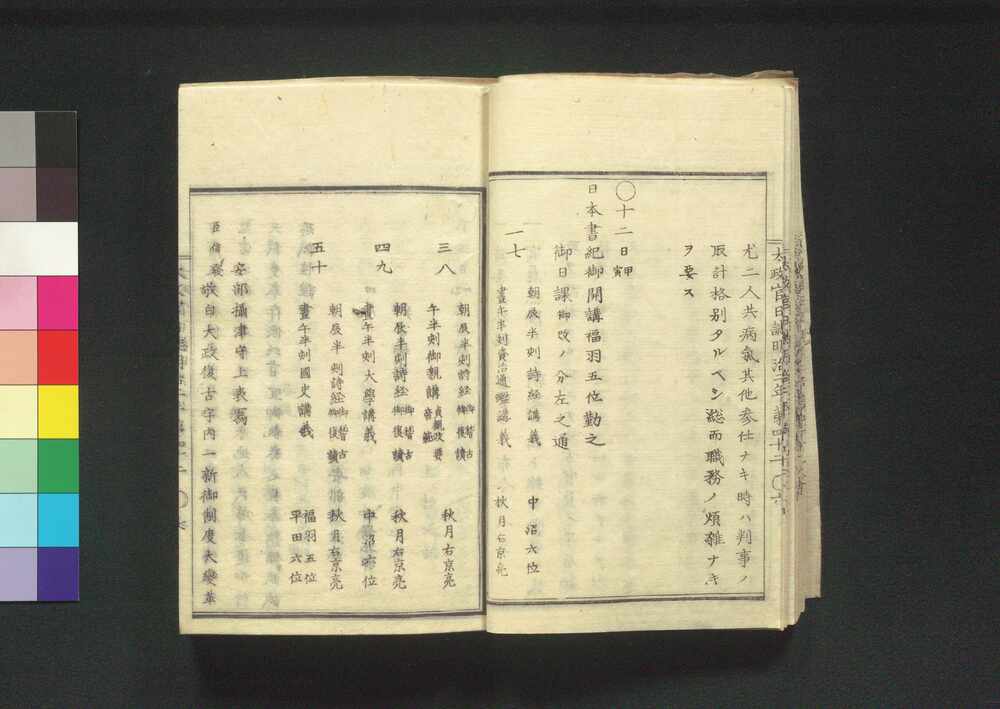 尤二人共病氣其他参仕ナキ時ハ判事ノ
取計格別タルベシ総而職務ノ煩雜ナキ
ヲ要ス
〇十二日甲寅
日本書紀御開講福羽五位勤之
御日課御改ノ分左之通
一七
朝辰半刻詩経講義 中沼六位
晝午半刻資治通鑑講義 秋月右京亮
三八
朝辰半刻詩経御稽古御復讀
午半刻御親講貞觀政要 秋月右京亮
四九
朝辰半刻詩経御稽古御復讀 秋月右京亮
晝午半刻大學講義 中沼六位
五十
朝辰半刻詩経御稽古御復讀 秋月右京亮
晝午半刻國史講義 福羽五位 平田六位
安部攝津守上表寫
臣信發敬白大政復古宇内一新御制度大變革